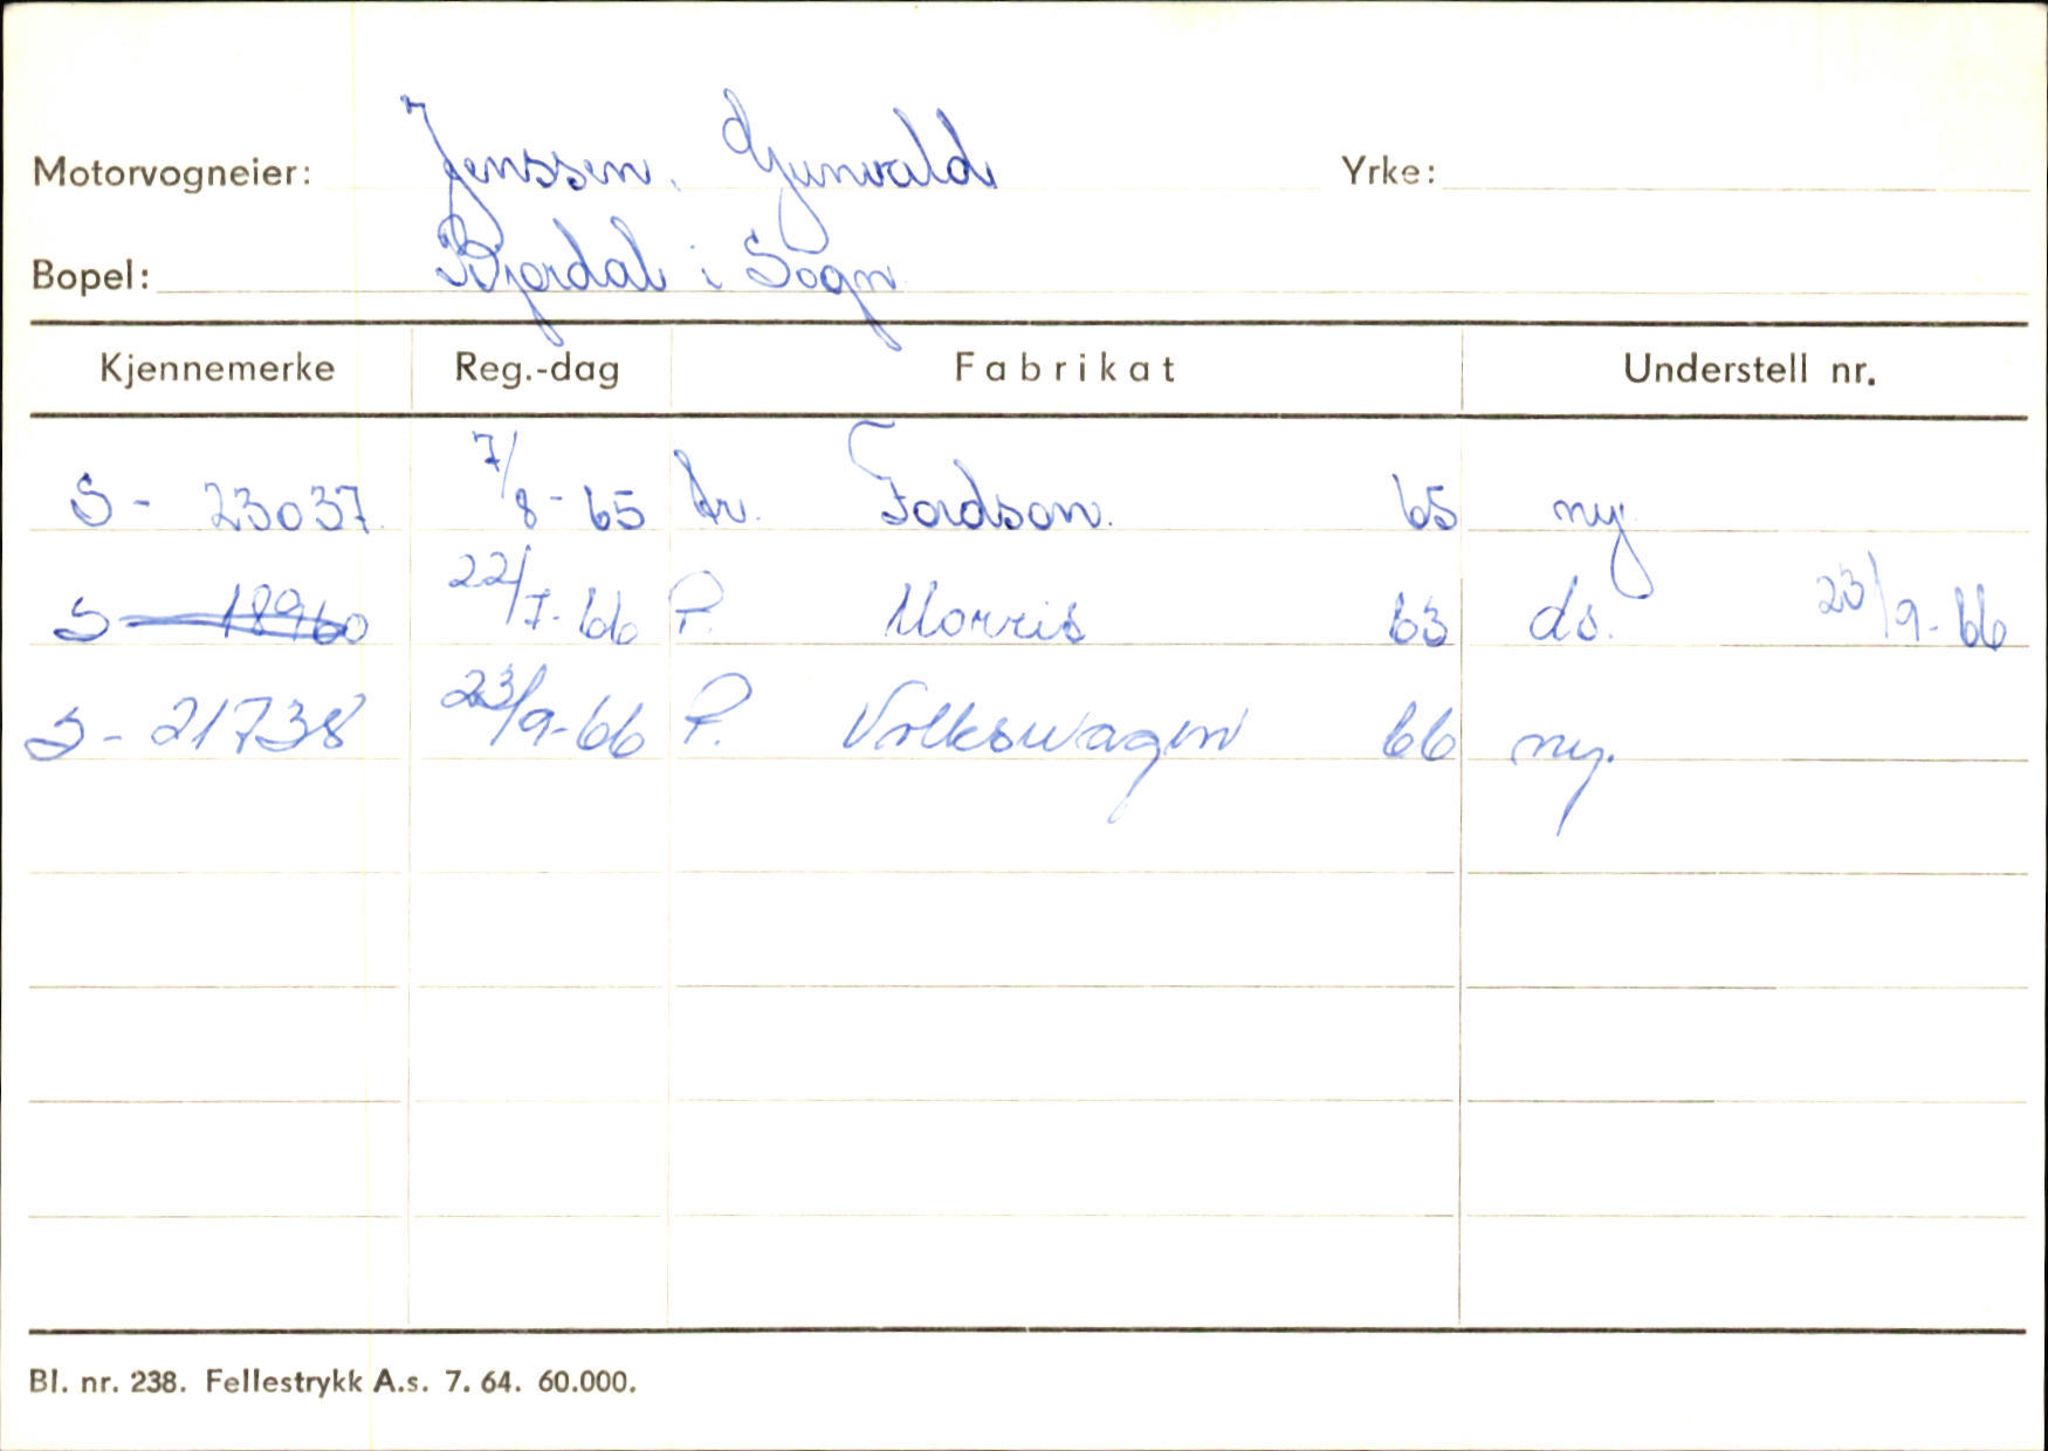 Motorvogneier: Jenssen. Gunvald Yrke:
Bopel: Bjordal i Sogn
Kjennemerke Reg.-dag Fabrikat Understell nr.
S - 23037. 7/8-65 tr. Fordson. 65 ny
S - 18960 22/7-66 P. Morris 63 ds. 23/9-66
S - 21738 23/9-66 P. Volkswagen 66 ny.
Bl. nr. 238. Fellestrykk A.s. 7. 64. 60.000.